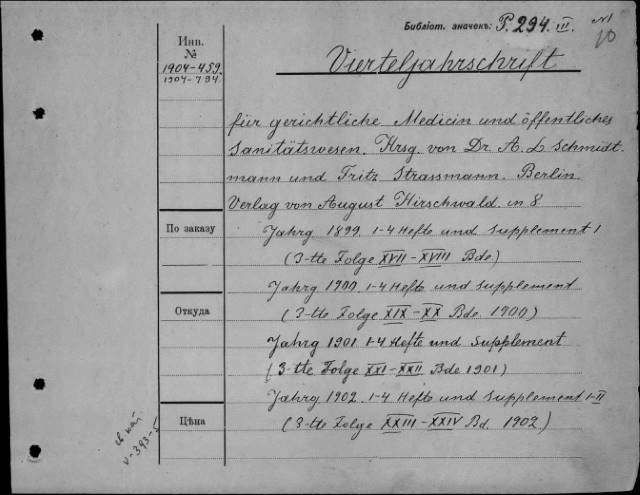 Библіот. значекъ: P. 294. III. №1
10
Инв.
№
1904-459.
1904-794
Vierteljahrschrift
für gerichtliche Medicin und öffentliches
Sanitätswesen. Hrsg. von Dr. A. L Schmidt-
mann und Fritz Strassmann. Berlin
Verlag von August Hirschwald. in 8.
По заказу
Jahrg 1899. 1-4 Hefte und Supplement 1
(3-tte Folge XVII-XVIII Bde.)
Jahrg 1900. 1-4 Hefte und Supplement
Откуда
(3-tte Folge XIX-XX Bde. 1900)
Jahrg 1901. 1-4 Hefte und Supplement
(3-tte Folge XXI-XXII Bde 1901)
Jahrg. 1902. 1-4 Hefte und Supplement I-II
Цѣна
(3-tte Folge XXIII-XXIV Bd. 1902.)
V-393-5